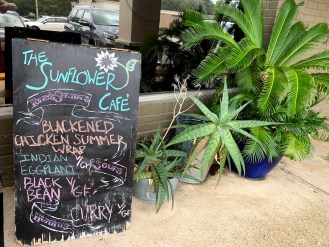 THE
SUNFLOWER
CAFÉ
BLACKENED
CHICKEN SUMMER
WRAP
INDIAN
EGGPLANT V/GF
SOUPS
BLACK
BEAN V/GF
CURRY V/GF